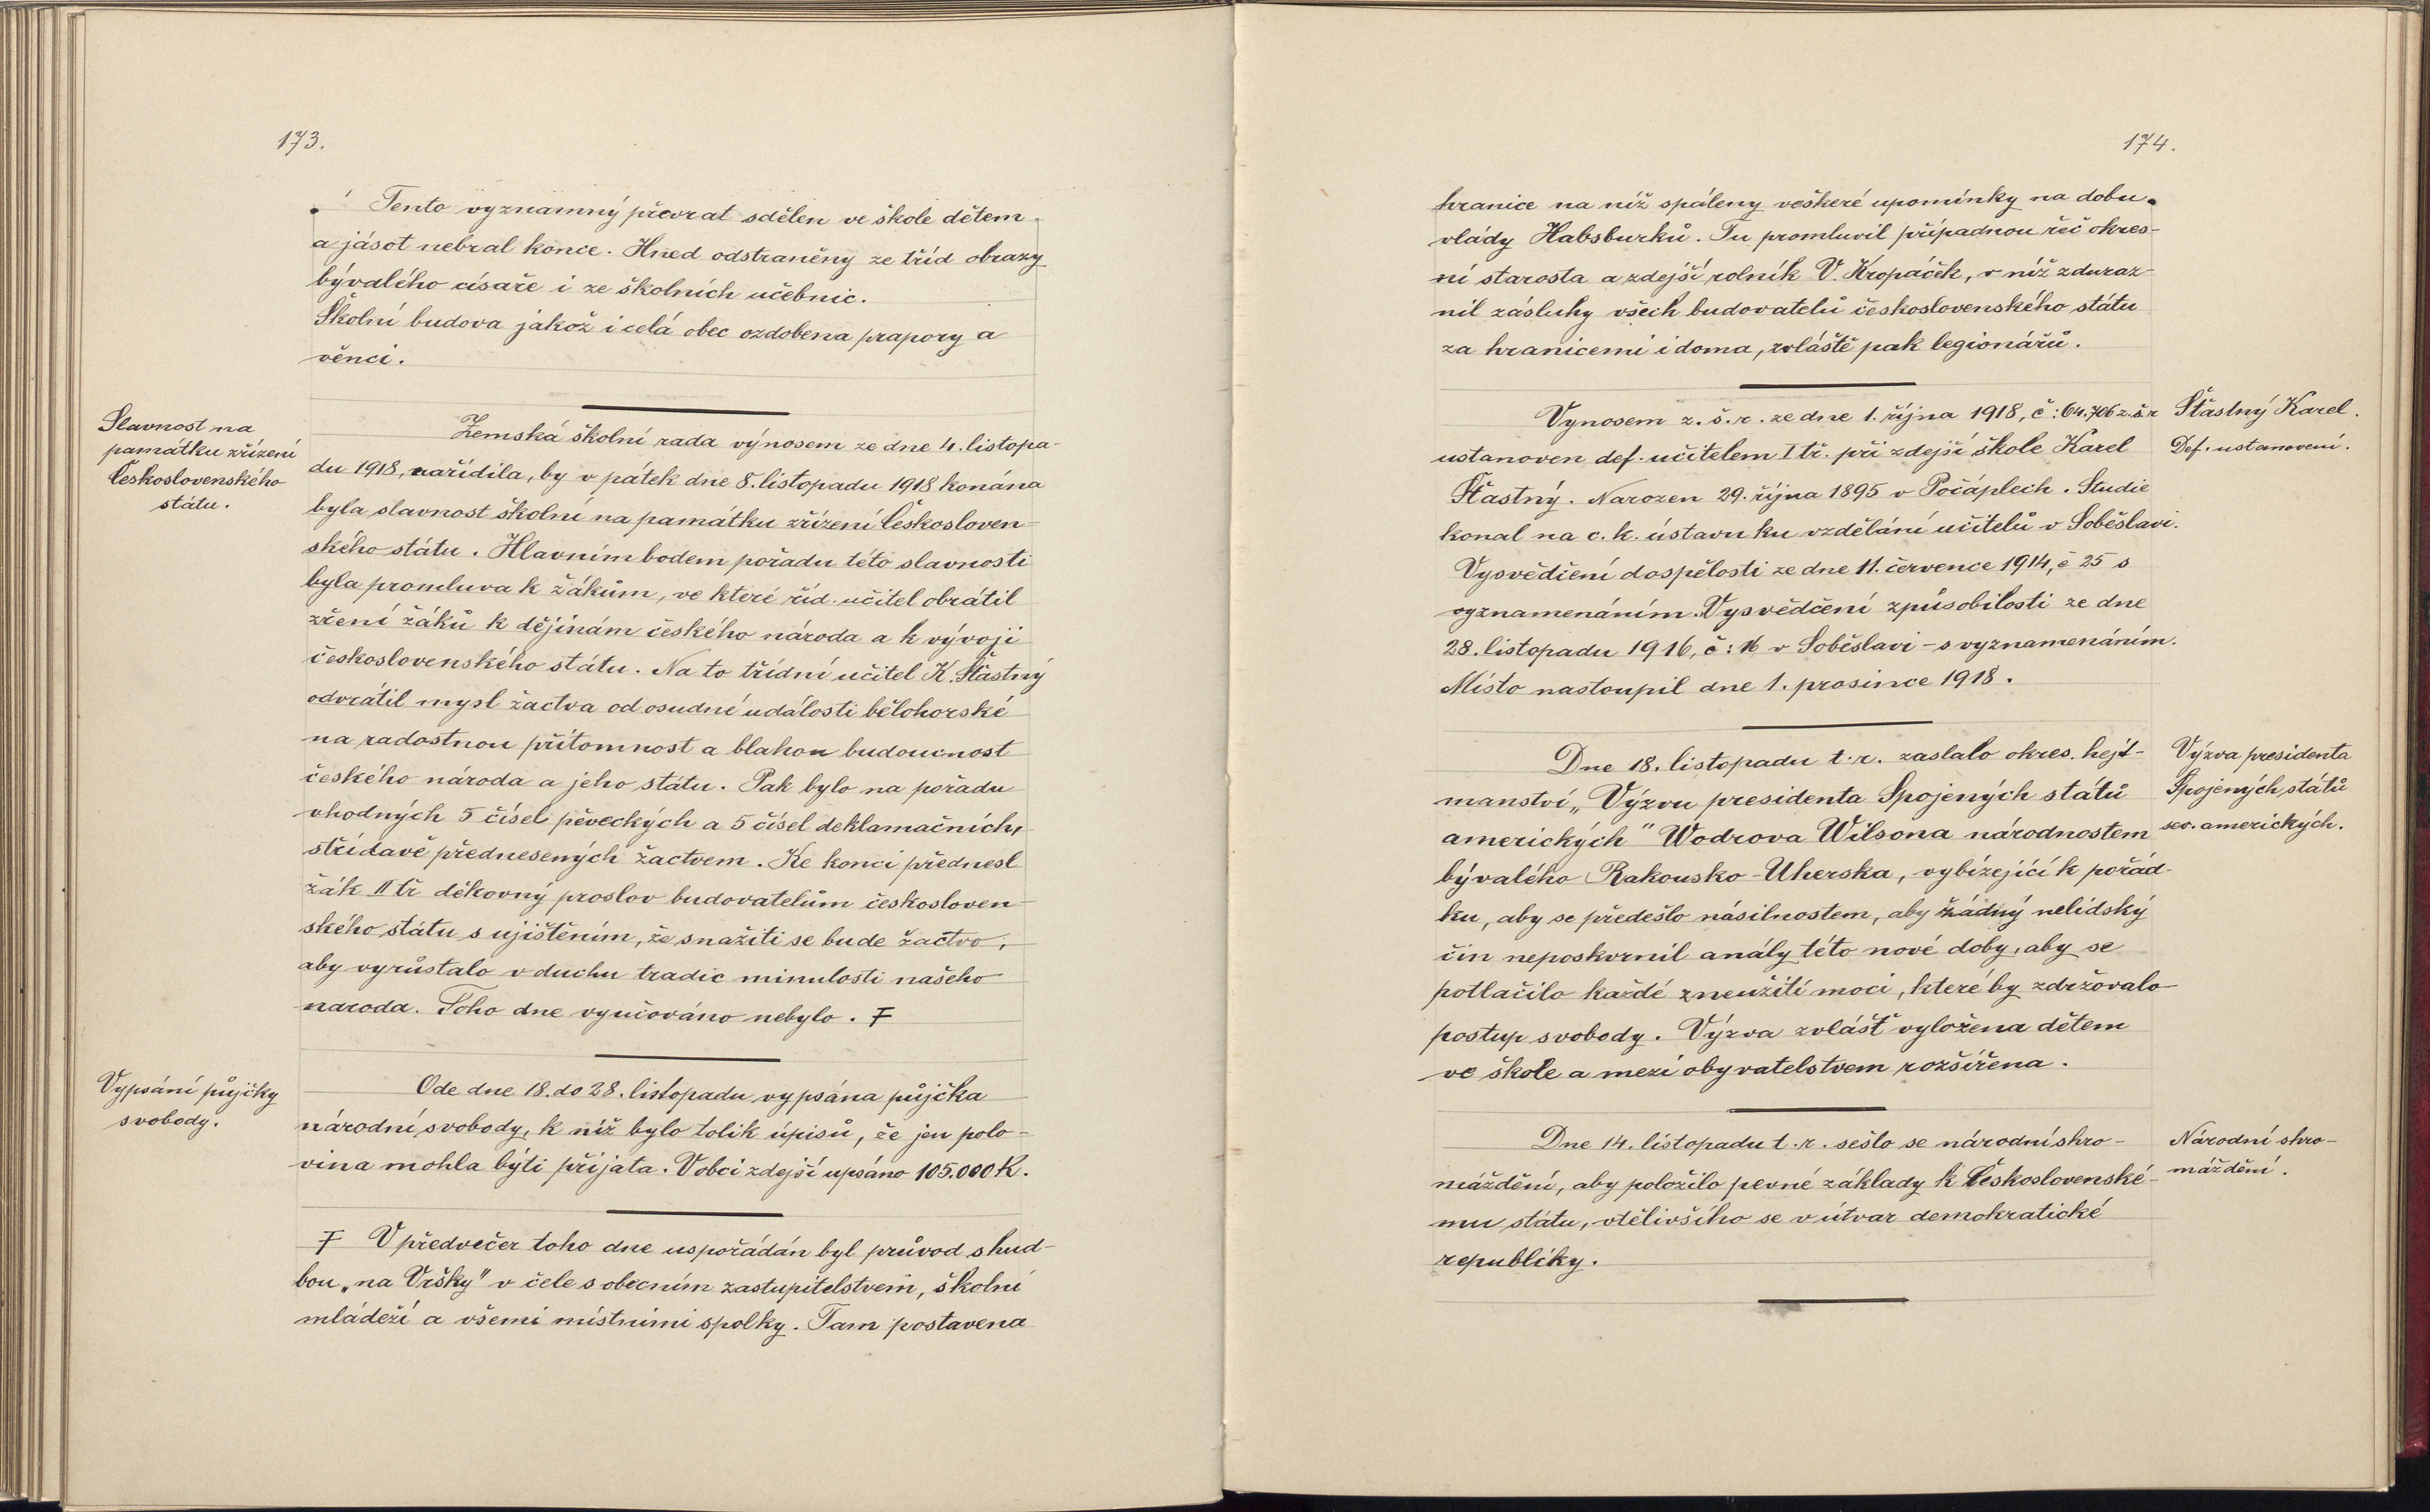 173.
Tento významný převrat sdělen ve škole dětem
a jásot nebral konce. Hned odstraněny ze tříd obrazy
bývalého císaře i ze školních učebnic.
Školní budova jakož i celá obec ozdobena prapory a
věnci.
Slavnost na
památku zřízení
Československého
státu.
Zemská školní rada výnosem ze dne 4. listopa-
du 1918, nařídila, by v pátek dne 8. listopadu 1918 konána
byla slavnost školní na památku zřízení Českosloven-
ského státu. Hlavním bodem pořadu této slavnosti
byla promluva k žákům, ve které říd. učitel obrátil
zření žáků k dějinám českého národa a k vývoji
československého státu. Na to třídní učitel K. Šťastný
odvrátil mysl žactva od osudné události bělohorské
na radostnou přítomnost a blahou budoucnost
českého národa a jeho státu. Pak bylo na pořadu
vhodných 5 čísel pěveckých a 5 čísel deklamačních,
střídavě přednesených žactvem. Ke konci přednesl
žák II tř děkovný proslov budovatelům českosloven-
ského státu s ujištěním, že snažiti se bude žactvo,
aby vyrůstalo v duchu tradic minulosti našeho
naroda. Toho dne vyučováno nebylo. Ŧ
Vypsání půjčky
svobody.
Ode dne 18. do 28. listopadu vypsána půjčka
národní svobody, k níž bylo tolik úpisů, že jen polo-
vina mohla býti přijata. V obci zdejší upsáno 105.000 K.
Ŧ V předvečer toho dne uspořádán byl průvod s hud-
bou „na Vršky" v čele s obecním zastupitelstvem, školní
mládeží a všemi místními spolky. Tam postavena
174.
hranice na níž spáleny veškeré upomínky na dobu
vlády Habsburků. Tu promluvil případnou řeč okres-
ní starosta a zdejší rolník V. Kropáček, v níž zduraz-
nil zásluhy všech budovatelů československého státu
za hranicemi i doma, zvláště pak legionářů.
Vynosem z. š. r. ze dne 1. října 1918, č: 64.706 z. š. r
ustanoven def. učitelem I tř. při zdejší škole Karel
Šťastný. Narozen 29. října 1895 v Počáplech. Studie
konal na c. k. ústavu ku vzdělání učitelů v Soběslavi.
Vysvědčení dospělosti ze dne 11. července 1914, č 25 s
vyznamenáním. Vysvědčení způsobilosti ze dne
28. listopadu 1916, č: 16 v Soběslavi - s vyznamenáním.
Místo nastoupil dne 1. prosince 1918.
Šťastný Karel.
Def. ustanovení.
Dne 18. listopadu t. r. zaslalo okres. hejt-
manství „Výzvu presidenta Spojených států
amerických" Wodrova Wilsona národnostem
bývalého Rakousko-Uherska, vybízející k pořád-
ku, aby se předešlo násilnostem, aby žádný nelidský
čin neposkvrnil anály této nové doby, aby se
potlačilo každé zneužití moci, které by zdržovalo
postup svobody. Výzva zvlášť vyložena dětem
ve škole a mezi obyvatelstvem rozšířena.
Výzva presidenta
Spojených států
sev. amerických.
Dne 14. listopadu t. r. sešlo se národní shro-
máždění, aby položilo pevné základy k Československé-
mu státu, vtělivšího se v útvar demokratické
republiky.
Národní shro-
máždění.